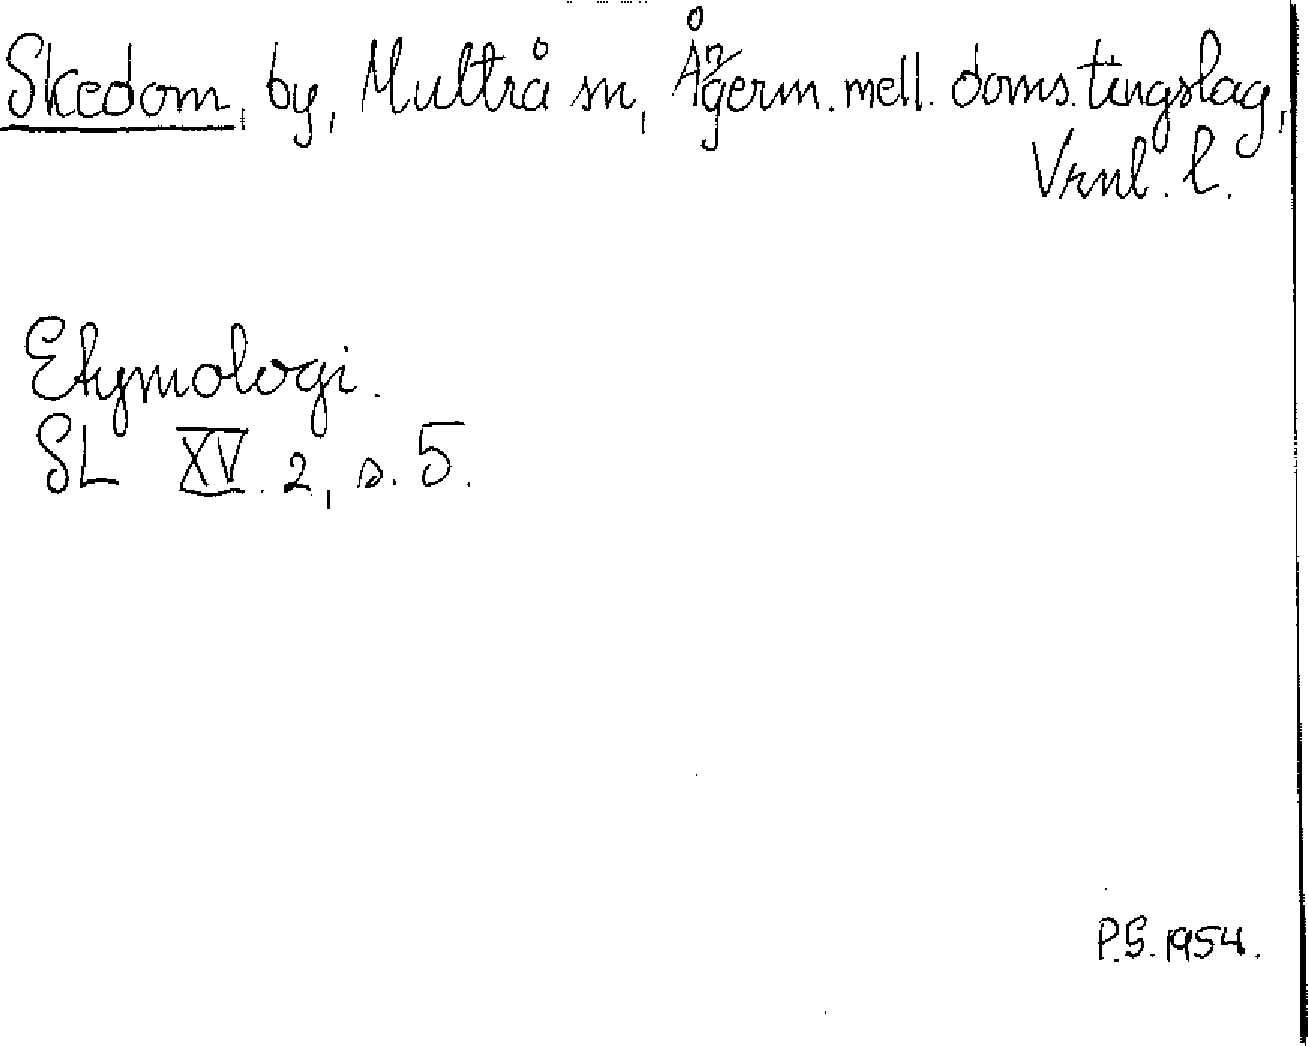 Skedom, by, Multrå sn, Ångerm. mell. doms. tingslag,
Vrnl. l.
Etymologi.
SL XV. 2, s. 5.
P.S. 1954.